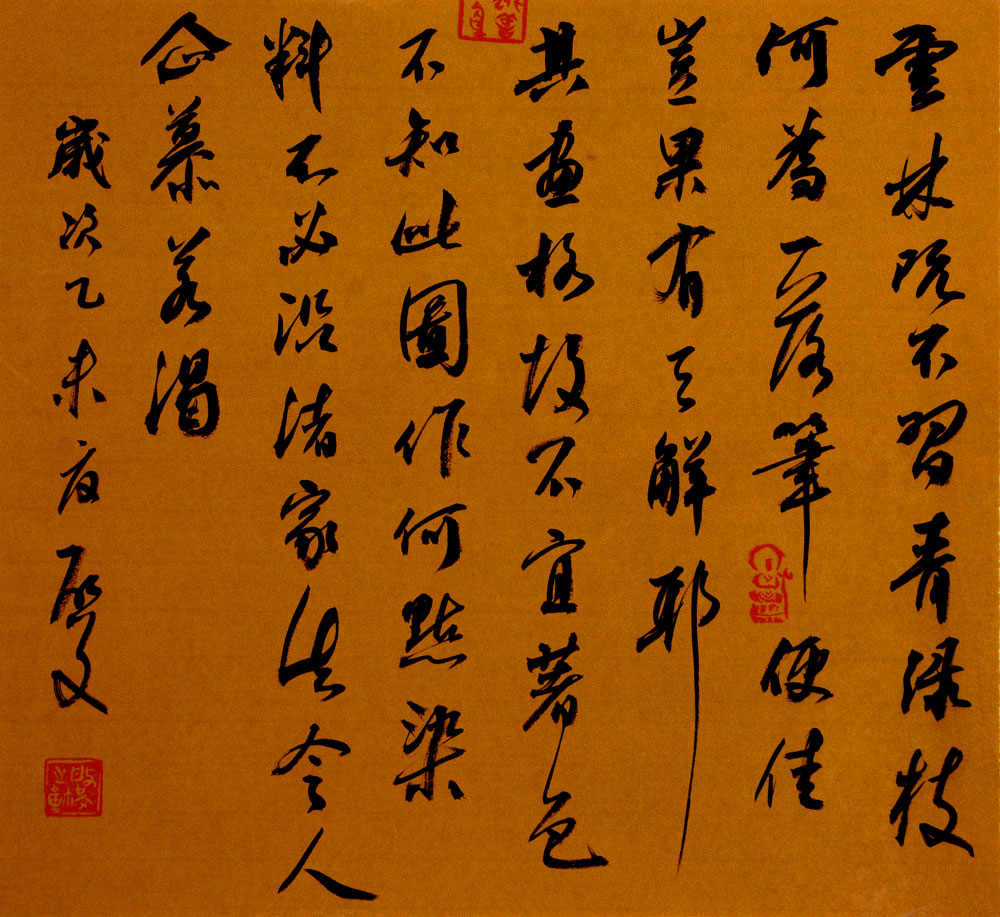 雲林既不習青綠技
何為一落筆便佳
豈果有天解耶
其畫格故不宜著色
不知此圖作何點染
料不必沿諸家法令人
企慕若渴
歲次乙未夏 文